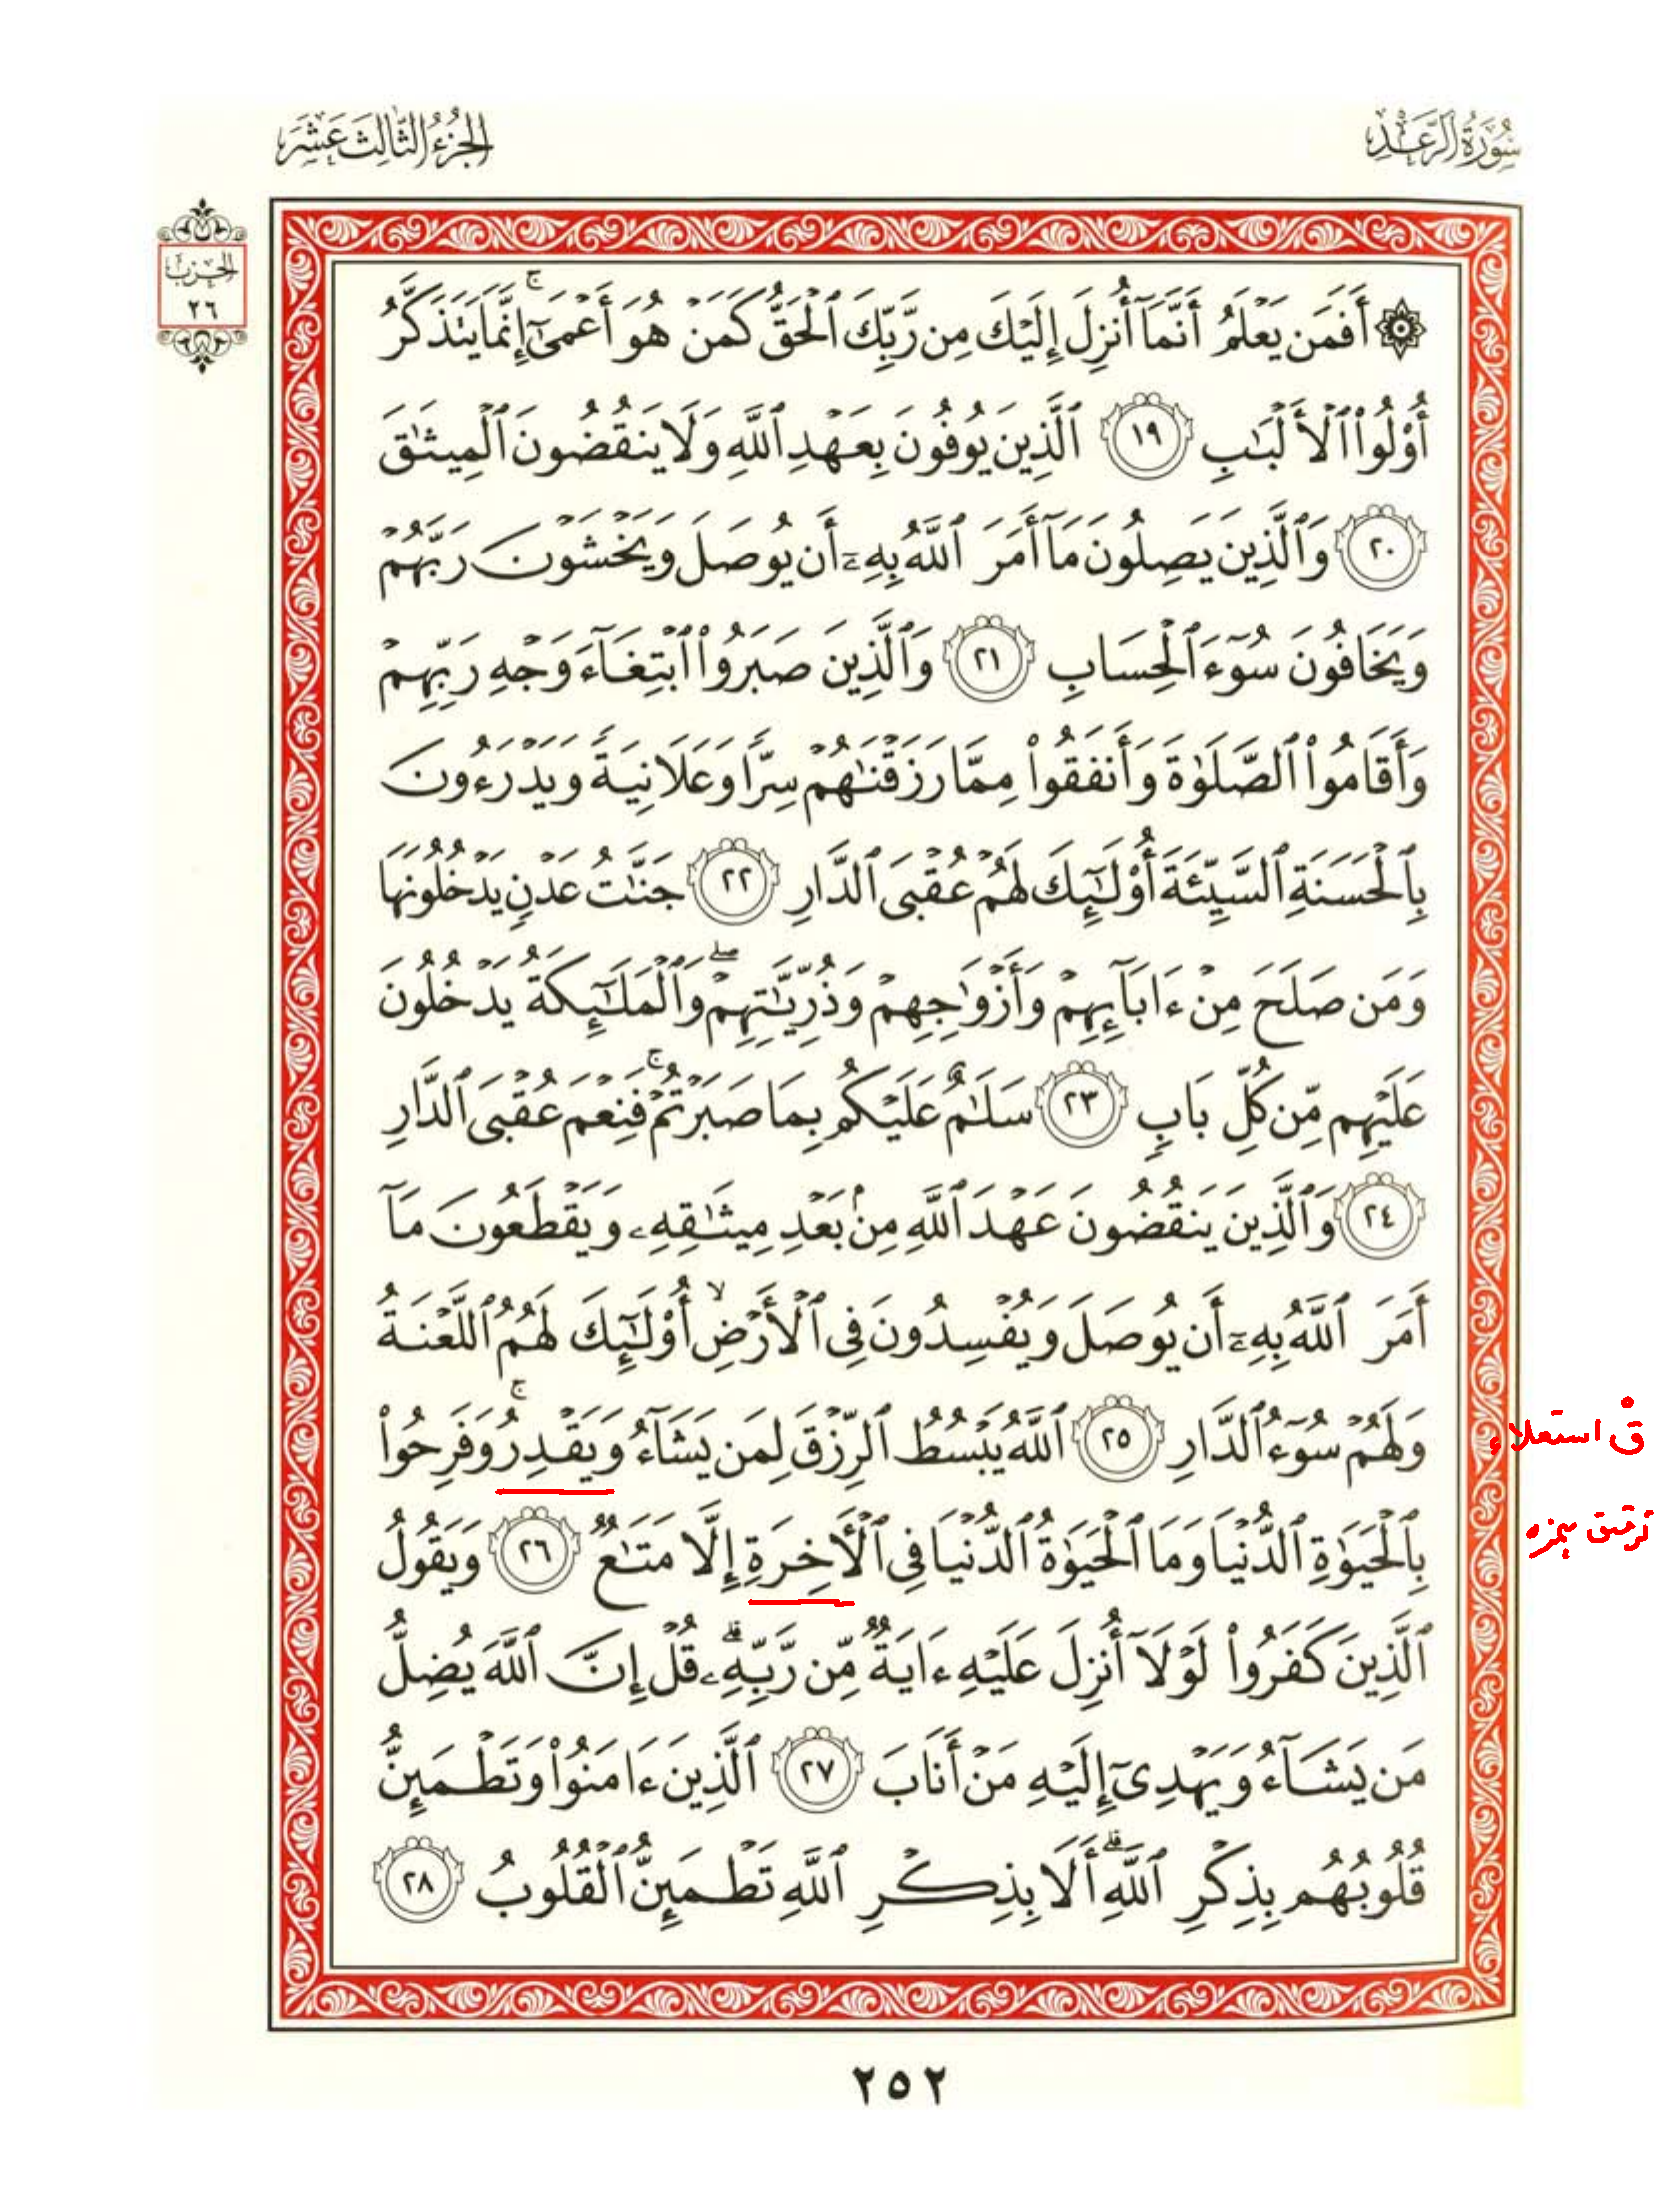 سُورَةُ الرَّعْدِ
الجُزْءُ الثَّالِثَ عَشَرَ
الحِزْب
٢٦
۞ أَفَمَن يَعْلَمُ أَنَّمَآ أُنزِلَ إِلَيْكَ مِن رَّبِّكَ ٱلْحَقُّ كَمَنْ هُوَ أَعْمَىٰٓ ۚ إِنَّمَا يَتَذَكَّرُ
أُو۟لُوا۟ ٱلْأَلْبَـٰبِ ١٩ ٱلَّذِينَ يُوفُونَ بِعَهْدِ ٱللَّهِ وَلَا يَنقُضُونَ ٱلْمِيثَـٰقَ
٢٠ وَٱلَّذِينَ يَصِلُونَ مَآ أَمَرَ ٱللَّهُ بِهِۦٓ أَن يُوصَلَ وَيَخْشَوْنَ رَبَّهُمْ
وَيَخَافُونَ سُوٓءَ ٱلْحِسَابِ ٢١ وَٱلَّذِينَ صَبَرُوا۟ ٱبْتِغَآءَ وَجْهِ رَبِّهِمْ
وَأَقَامُوا۟ ٱلصَّلَوٰةَ وَأَنفَقُوا۟ مِمَّا رَزَقْنَـٰهُمْ سِرًّا وَعَلَانِيَةً وَيَدْرَءُونَ
بِٱلْحَسَنَةِ ٱلسَّيِّئَةَ أُو۟لَـٰٓئِكَ لَهُمْ عُقْبَى ٱلدَّارِ ٢٢ جَنَّـٰتُ عَدْنٍ يَدْخُلُونَهَا
وَمَن صَلَحَ مِنْ ءَابَآئِهِمْ وَأَزْوَٰجِهِمْ وَذُرِّيَّـٰتِهِمْ ۖ وَٱلْمَلَـٰٓئِكَةُ يَدْخُلُونَ
عَلَيْهِم مِّن كُلِّ بَابٍ ٢٣ سَلَـٰمٌ عَلَيْكُم بِمَا صَبَرْتُمْ ۚ فَنِعْمَ عُقْبَى ٱلدَّارِ
٢٤ وَٱلَّذِينَ يَنقُضُونَ عَهْدَ ٱللَّهِ مِنۢ بَعْدِ مِيثَـٰقِهِۦ وَيَقْطَعُونَ مَآ
أَمَرَ ٱللَّهُ بِهِۦٓ أَن يُوصَلَ وَيُفْسِدُونَ فِى ٱلْأَرْضِ ۙ أُو۟لَـٰٓئِكَ لَهُمُ ٱللَّعْنَةُ
وَلَهُمْ سُوٓءُ ٱلدَّارِ ٢٥ ٱللَّهُ يَبْسُطُ ٱلرِّزْقَ لِمَن يَشَآءُ وَيَقْدِرُ ۚ وَفَرِحُوا۟
ق استعلاء
بِٱلْحَيَوٰةِ ٱلدُّنْيَا وَمَا ٱلْحَيَوٰةُ ٱلدُّنْيَا فِى ٱلْأَخِرَةِ إِلَّا مَتَـٰعٌ ٢٦ وَيَقُولُ
ترقق
ٱلَّذِينَ كَفَرُوا۟ لَوْلَآ أُنزِلَ عَلَيْهِ ءَايَةٌ مِّن رَّبِّهِۦ ۗ قُلْ إِنَّ ٱللَّهَ يُضِلُّ
مَن يَشَآءُ وَيَهْدِىٓ إِلَيْهِ مَنْ أَنَابَ ٢٧ ٱلَّذِينَ ءَامَنُوا۟ وَتَطْمَئِنُّ
قُلُوبُهُم بِذِكْرِ ٱللَّهِ ۗ أَلَا بِذِكْرِ ٱللَّهِ تَطْمَئِنُّ ٱلْقُلُوبُ ٢٨
٢٥٢